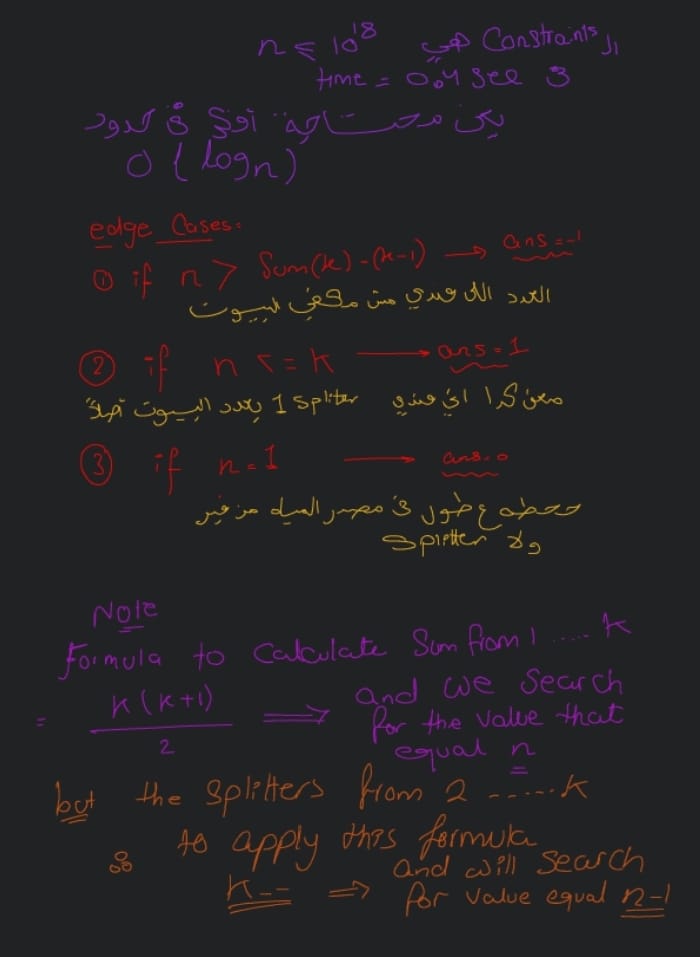 الـ Constraints هي n ≤ 10^18
time = 0.4 sec و
يبقى محتاجة أوفي في حدود
O(log n)
edge Cases:
① if n > Sum(k) - (k-1) → ans = -1
العدد اللي عندي مش مكفي البيوت
② if n <= k → ans = 1
معنى كدا اني عندي 1 spliter بعدد البيوت أصلاً
③ if n = 1 → ans = 0
هحطه ع طول في مصدر المياه من غير
ولا splitter
Note
Formula to Calculate Sum from 1 ..... k
= k(k+1) / 2 ⟹ and we search
for the value that
equal n
but the splitters from 2 ......k
∴ to apply this formula
k-- ⟹ and will search
for value equal n-1